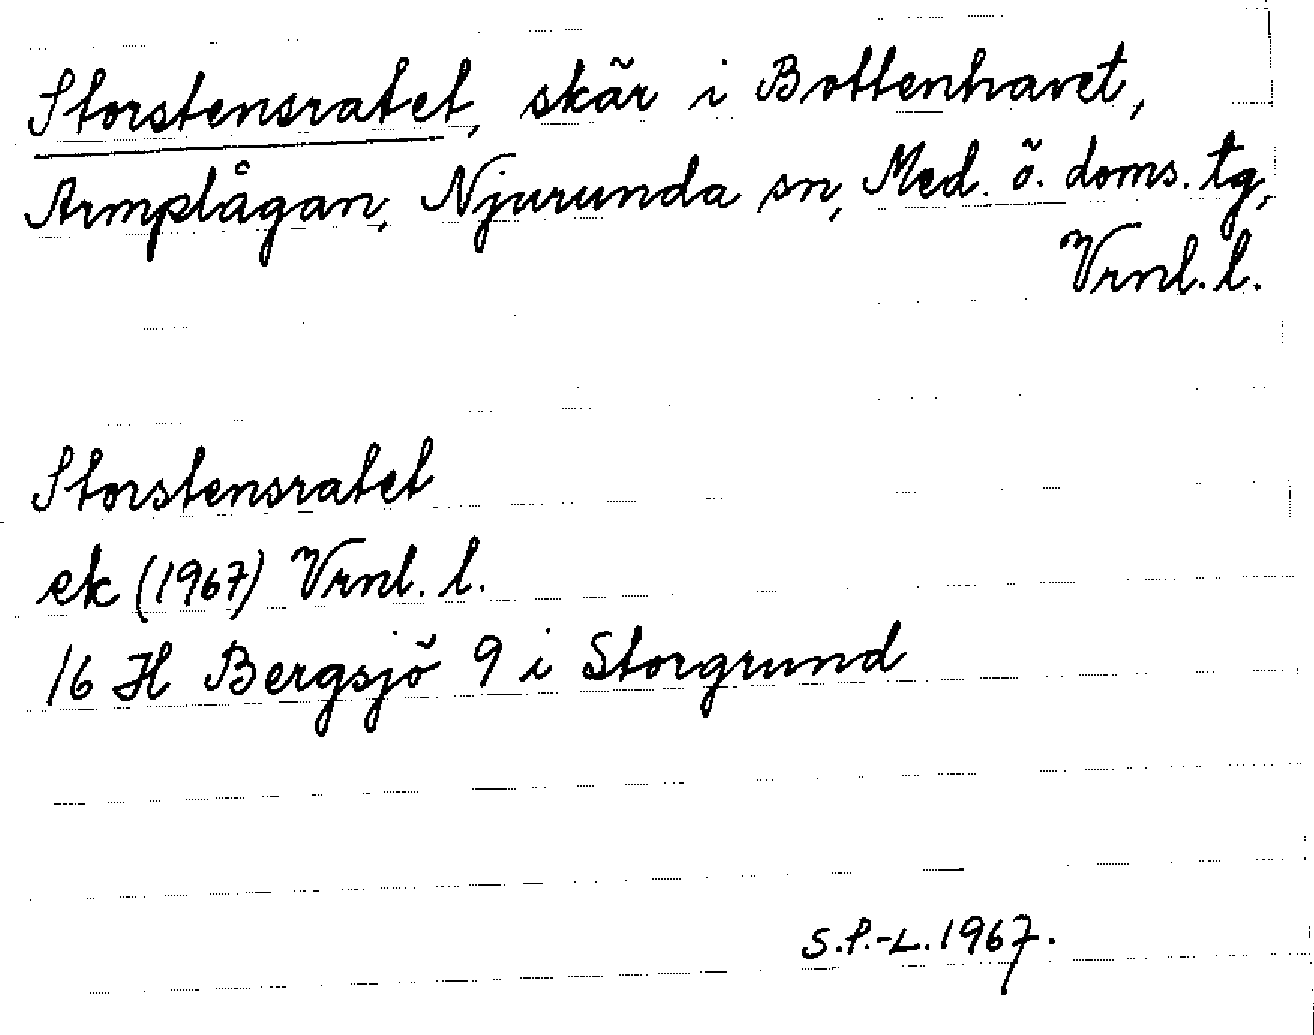 Storstensratet, skär i Bottenhavet,
Armplågan, Njurunda sn, Med. ö. doms. tg,
Vrnl. l.
Storstensratet
ek (1967) Vrnl. l.
16 H Bergsjö 9 i Storgrund
S.P.-L. 1967.